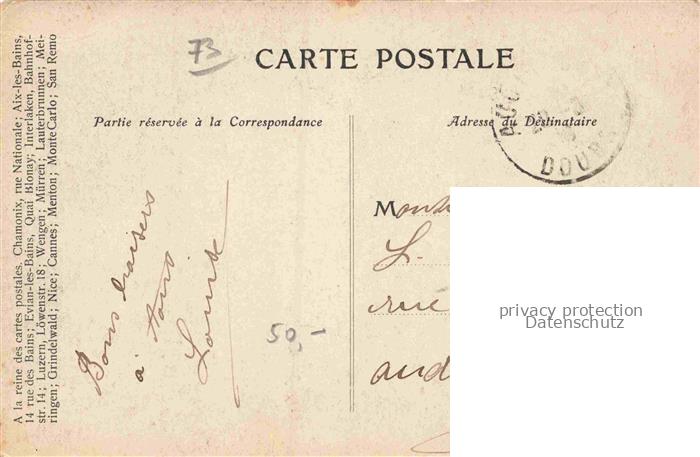 A la reine des cartes postales. Chamonix, rue Nationale; Aix-les-Bains,
14 rue des Bains; Evian-les-Bains, Quai Blonay; Interlaken, Bahnhof-
str. 14; Luzern, Löwenstr. 18; Wengen; Mürren; Lauterbrunnen; Mei-
ringen; Grindelwald; Nice; Cannes; Menton; Monte Carlo; San Remo
73
CARTE POSTALE
Partie réservée à la Correspondance
Adresse du Destinataire
DOUBS
Bons baisers
à tous
Louise
50,-
L.
rue
privacy protection
Datenschutz